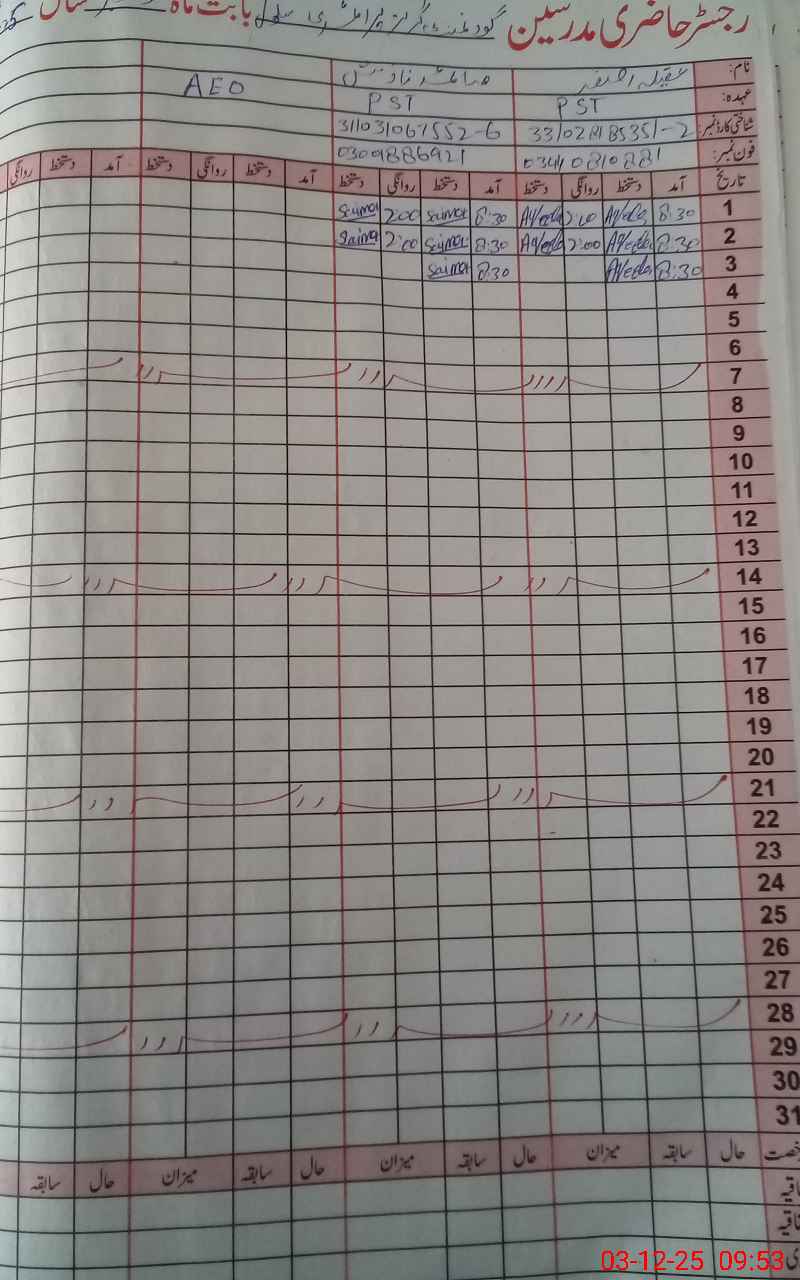 رجسٹر حاضری مدرسین گورنمنٹ گرلز پرائمری سکول بابت ماہ سال
نام: عقیلہ اصغر صائمہ
عہدہ: PST PST AEO
شناختی کارڈ نمبر: 33102-8185351-2 31103-1067552-6
فون نمبر: 0344 0810881 03009886921
تاریخ آمد دستخط روانگی دستخط آمد دستخط روانگی دستخط آمد دستخط روانگی دستخط آمد دستخط روانگی
1 8:30 Aqeela 2:00 Aqeela 8:30 Saima 2:00 Saima
2 8:30 Aqeela 2:00 Aqeela 8:30 Saima 2:00 Saima
3 8:30 Aqeela 8:30 Saima
4
5
6
7
8
9
10
11
12
13
14
15
16
17
18
19
20
21
22
23
24
25
26
27
28
29
30
31
حال سابقہ میزان حال سابقہ میزان حال سابقہ میزان حال سابقہ
03-12-25 09:53